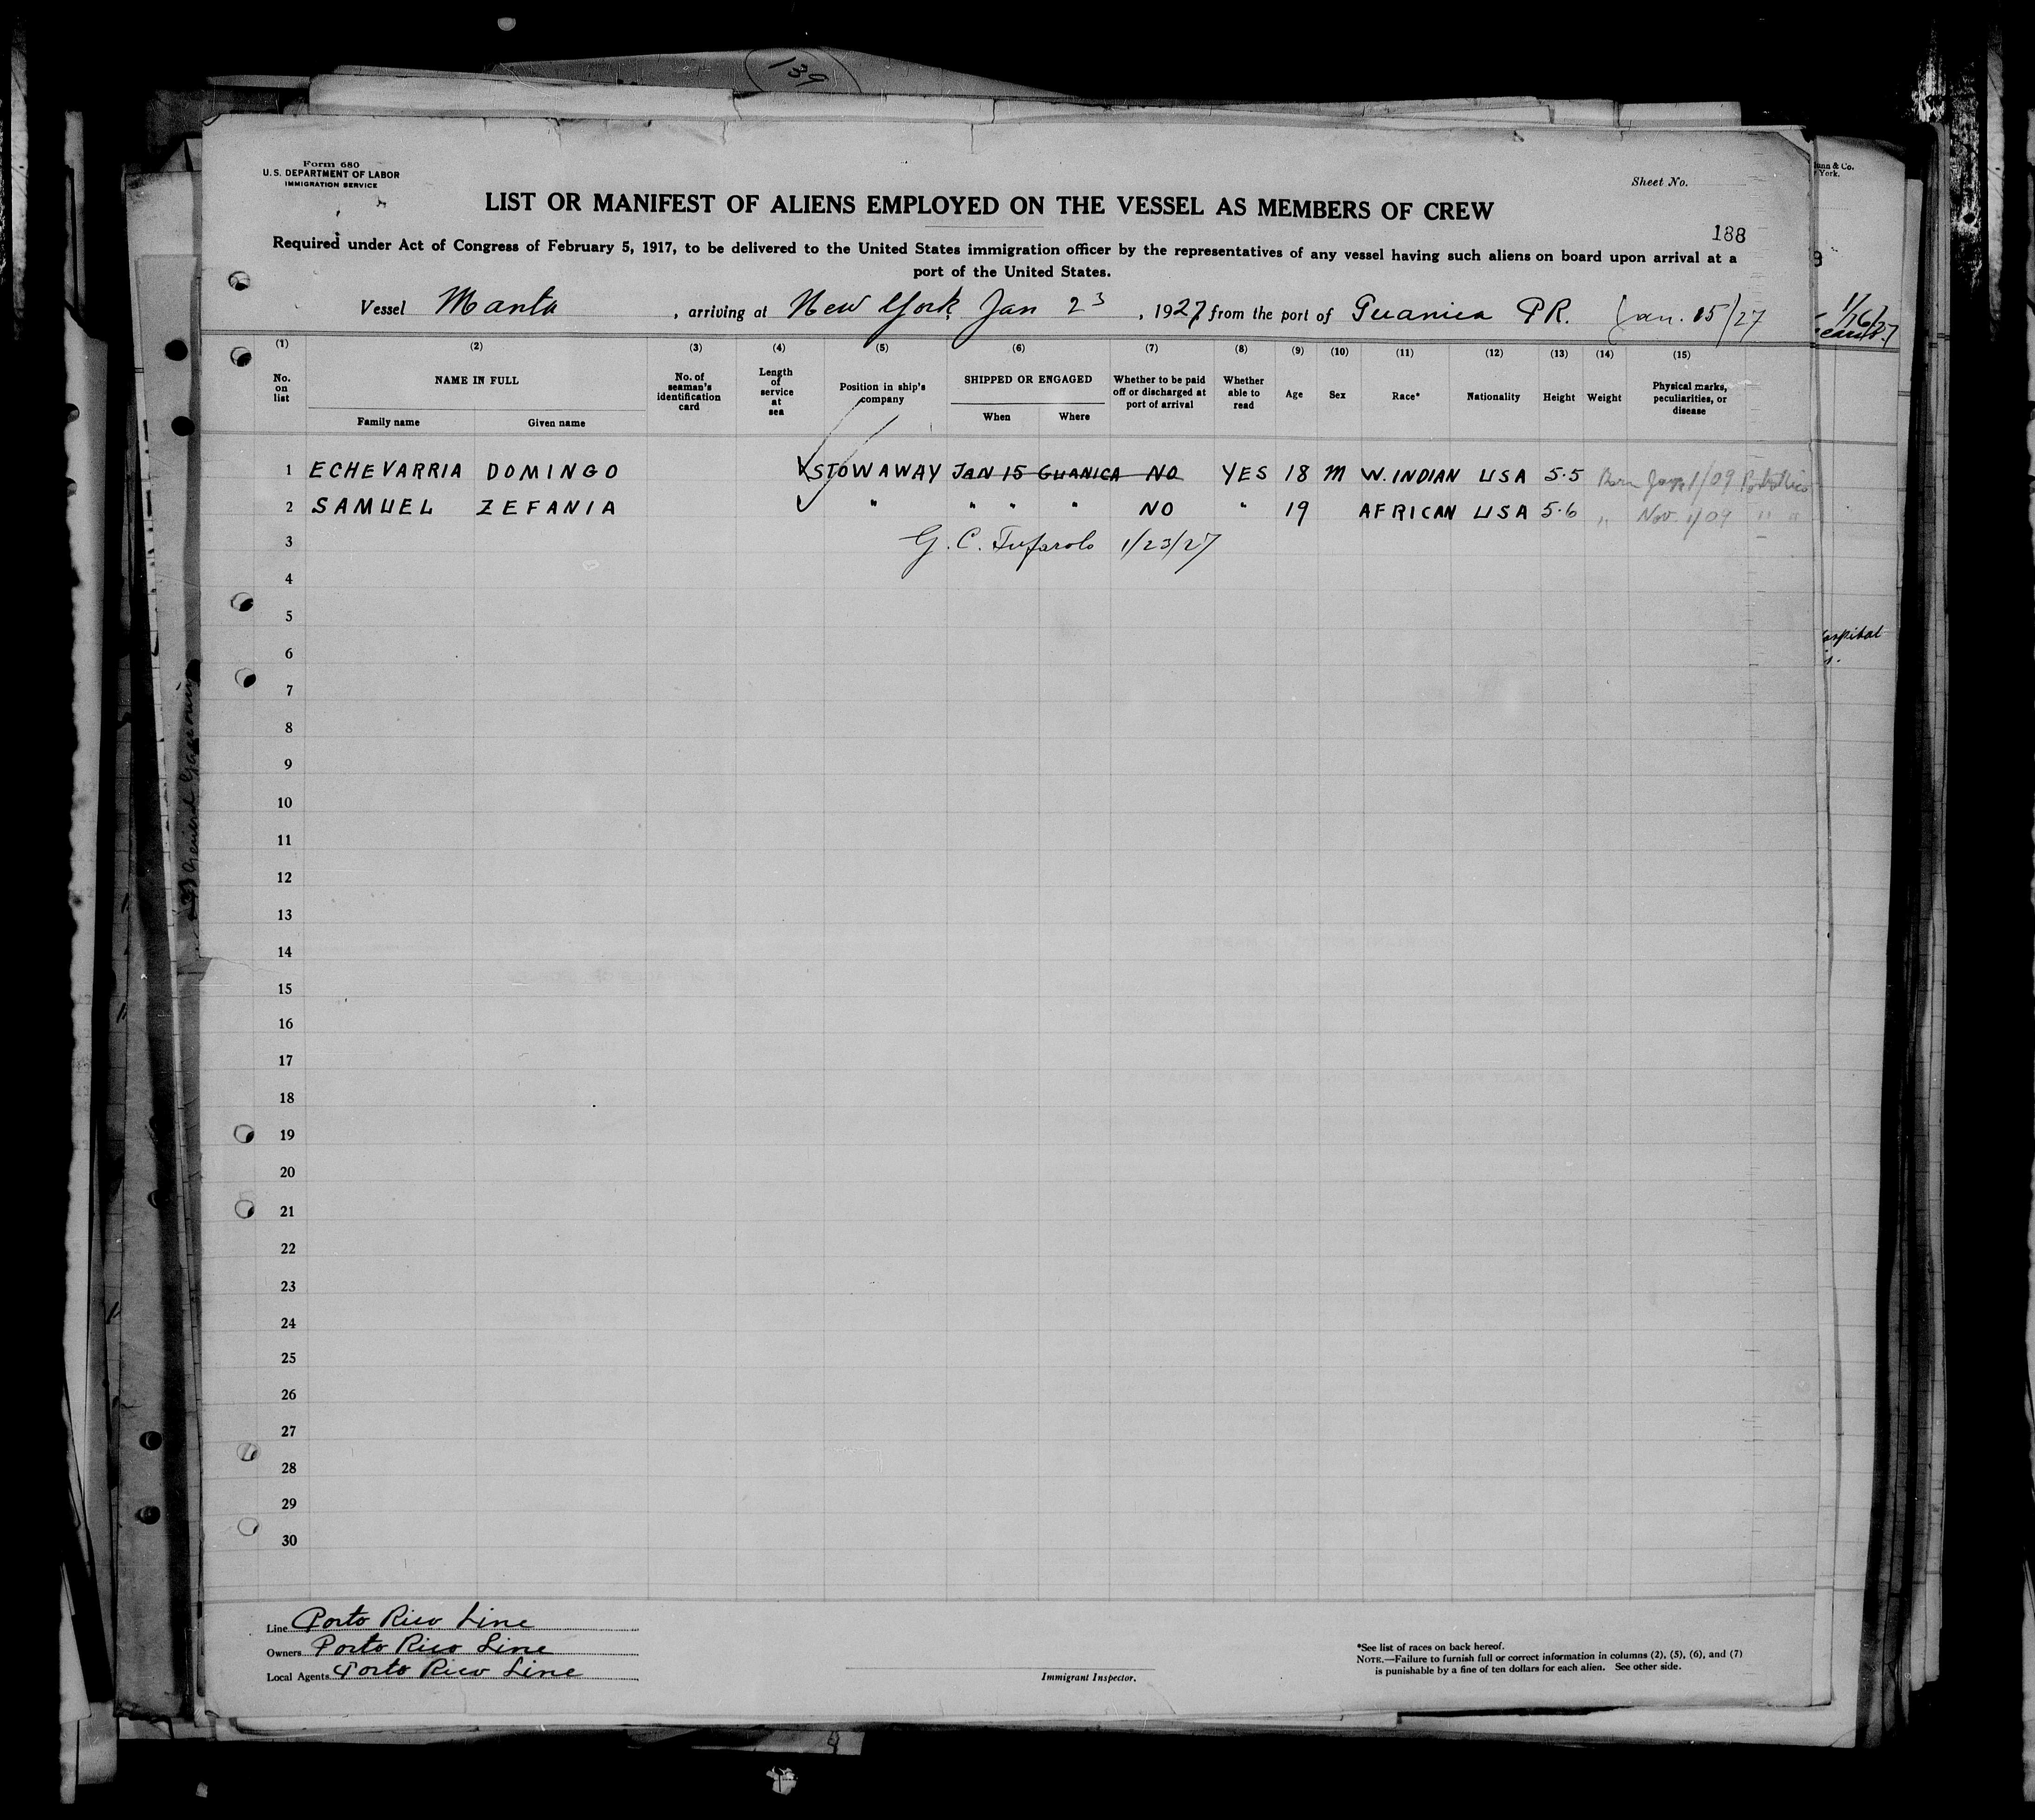 139
Form 680
U.S. DEPARTMENT OF LABOR
IMMIGRATION SERVICE
Sheet No.
LIST OR MANIFEST OF ALIENS EMPLOYED ON THE VESSEL AS MEMBERS OF CREW
188
Required under Act of Congress of February 5, 1917, to be delivered to the United States immigration officer by the representatives of any vessel having such aliens on board upon arrival at a
port of the United States.
Vessel Manta, arriving at New York Jan 23, 1927 from the port of Guanica P.R. Jan. 15/27
(1) (2) (3) (4) (5) (6) (7) (8) (9) (10) (11) (12) (13) (14) (15)
No. on list NAME IN FULL Family name Given name No. of seaman's identification card Length of service at sea Position in ship's company SHIPPED OR ENGAGED When Where Whether to be paid off or discharged at port of arrival Whether able to read Age Sex Race* Nationality Height Weight Physical marks, peculiarities, or disease
1 ECHEVARRIA DOMINGO STOWAWAY JAN 15 GUANICA NO YES 18 M W. INDIAN USA 5·5 Born Jan 1/09 Porto Rico
2 SAMUEL ZEFANIA " " " " NO " 19 AFRICAN USA 5·6 " Nov. 1/09 " "
3 G. C. 1/23/27
4
5
6
7
8
9
10
11
12
13
14
15
16
17
18
19
20
21
22
23
24
25
26
27
28
29
30
Line Porto Rico Line
Owners Porto Rico Line
Local Agents Porto Rico Line
Immigrant Inspector.
*See list of races on back hereof.
NOTE.—Failure to furnish full or correct information in columns (2), (5), (6), and (7)
is punishable by a fine of ten dollars for each alien. See other side.